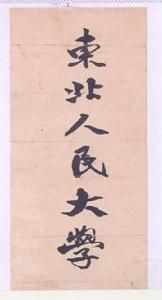 東北人民大學